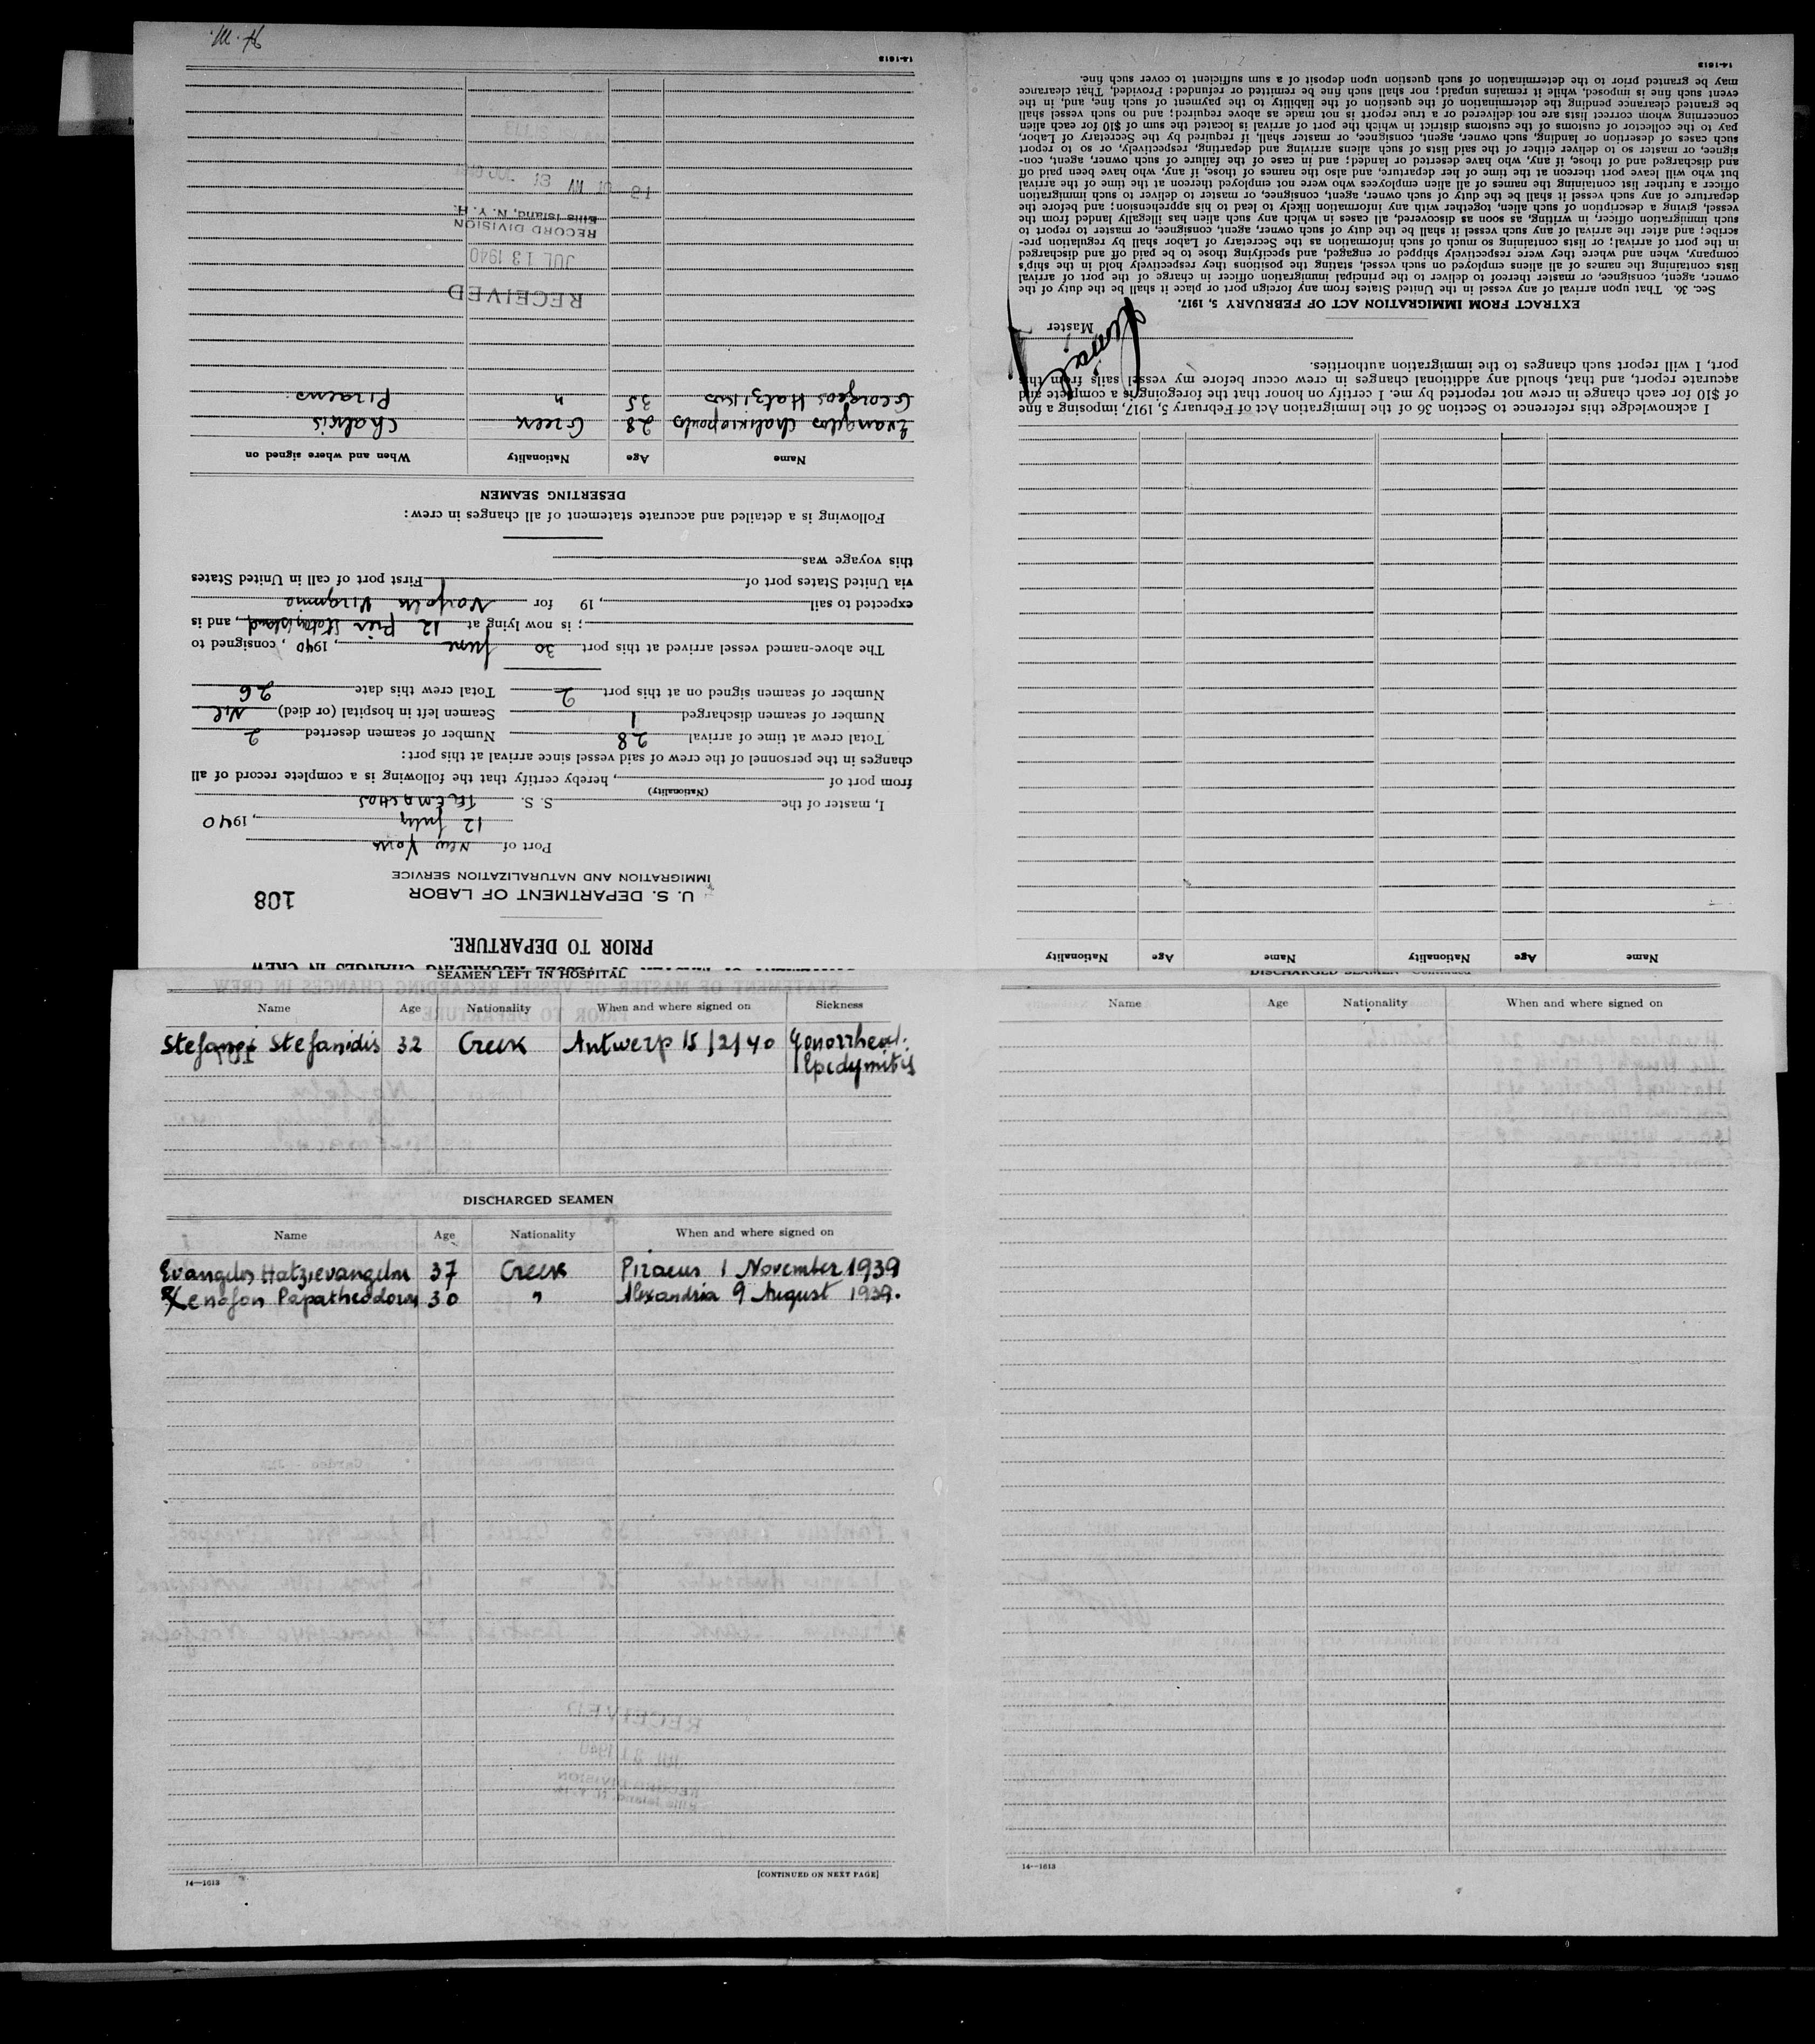 14-1613
may be granted prior to the determination of such question upon deposit of a sum sufficient to cover such fine.
STATEMENT OF MASTER OF VESSEL REGARDING CHANGES IN CREW
PRIOR TO DEPARTURE.
108
U. S. DEPARTMENT OF LABOR
IMMIGRATION AND NATURALIZATION SERVICE
Port of New York
12 July, 1940
I, master of the S. S. TELEMACHOS
(Nationality)
from port of , hereby certify that the following is a complete record of all
changes in the personnel of the crew of said vessel since arrival at this port:
Total crew at time of arrival 28 Number of seamen deserted 2
Number of seamen discharged 1 Seamen left in hospital (or died) Nil
Number of seamen signed on at this port 2 Total crew this date 26
The above-named vessel arrived at this port 30 June, 1940, consigned to
; is now lying at 12 Pier Staten Island, and is
expected to sail , 19 for Norfolk Virginia
via United States port of First port of call in United States
this voyage was
Following is a detailed and accurate statement of all changes in crew:
DESERTING SEAMEN
Name Age Nationality When and where signed on
Evangelos Chalikiopoulos 28 Greek Chalkis
Georgios Hatzikos 35 " Piraeus.
RECEIVED
JUL 13 1940
RECORD DIVISION
Ellis Island, N. Y. H.
14-1613
Name Age Nationality Name Age Nationality
I acknowledge this reference to Section 36 of the Immigration Act of February 5, 1917, imposing a fine
of $10 for each change in crew not reported by me. I certify on honor that the foregoing is a complete and
accurate report, and that, should any additional changes in crew occur before my vessel sails from this
port, I will report such changes to the immigration authorities.
Master
EXTRACT FROM IMMIGRATION ACT OF FEBRUARY 5, 1917.
Sec. 36. That upon arrival of any vessel in the United States from any foreign port or place it shall be the duty of the
owner, agent, consignee, or master thereof to deliver to the principal immigration officer in charge of the port of arrival
lists containing the names of all aliens employed on such vessel, stating the positions they respectively hold in the ship's
company, when and where they were respectively shipped or engaged, and specifying those to be paid off and discharged
in the port of arrival; or lists containing so much of such information as the Secretary of Labor shall by regulation pre-
scribe; and after the arrival of any such vessel it shall be the duty of such owner, agent, consignee, or master to report to
such immigration officer, in writing, as soon as discovered, all cases in which any such alien has illegally landed from the
vessel, giving a description of such alien, together with any information likely to lead to his apprehension; and before the
departure of any such vessel it shall be the duty of such owner, agent, consignee, or master to deliver to such immigration
officer a further list containing the names of all alien employees who were not employed thereon at the time of the arrival
but who will leave port thereon at the time of her departure, and also the names of those, if any, who have been paid off
and discharged and of those, if any, who have deserted or landed; and in case of the failure of such owner, agent, con-
signee, or master so to deliver either of the said lists of such aliens arriving and departing, respectively, or so to report
such cases of desertion or landing, such owner, agent, consignee, or master shall, if required by the Secretary of Labor,
pay to the collector of customs of the customs district in which the port of arrival is located the sum of $10 for each alien
concerning whom correct lists are not delivered or a true report is not made as above required; and no such vessel shall
be granted clearance pending the determination of the question of the liability to the payment of such fine, and, in the
event such fine is imposed, while it remains unpaid; nor shall such fine be remitted or refunded: Provided, That clearance
SEAMEN LEFT IN HOSPITAL
Name Age Nationality When and where signed on Sickness
Stefanos Stefanidis 32 Creek Antwerp 15/2/40 Gonorrheal.
Epedymitis
DISCHARGED SEAMEN
Name Age Nationality When and where signed on
Evangelos Hatzievangelou 37 Creek Piraeus 1 November 1939
Xenofon Papatheodorou 30 " Alexandria 9 August 1939.
14—1613
[CONTINUED ON NEXT PAGE]
DISCHARGED SEAMEN—Continued
Name Age Nationality When and where signed on
14—1613